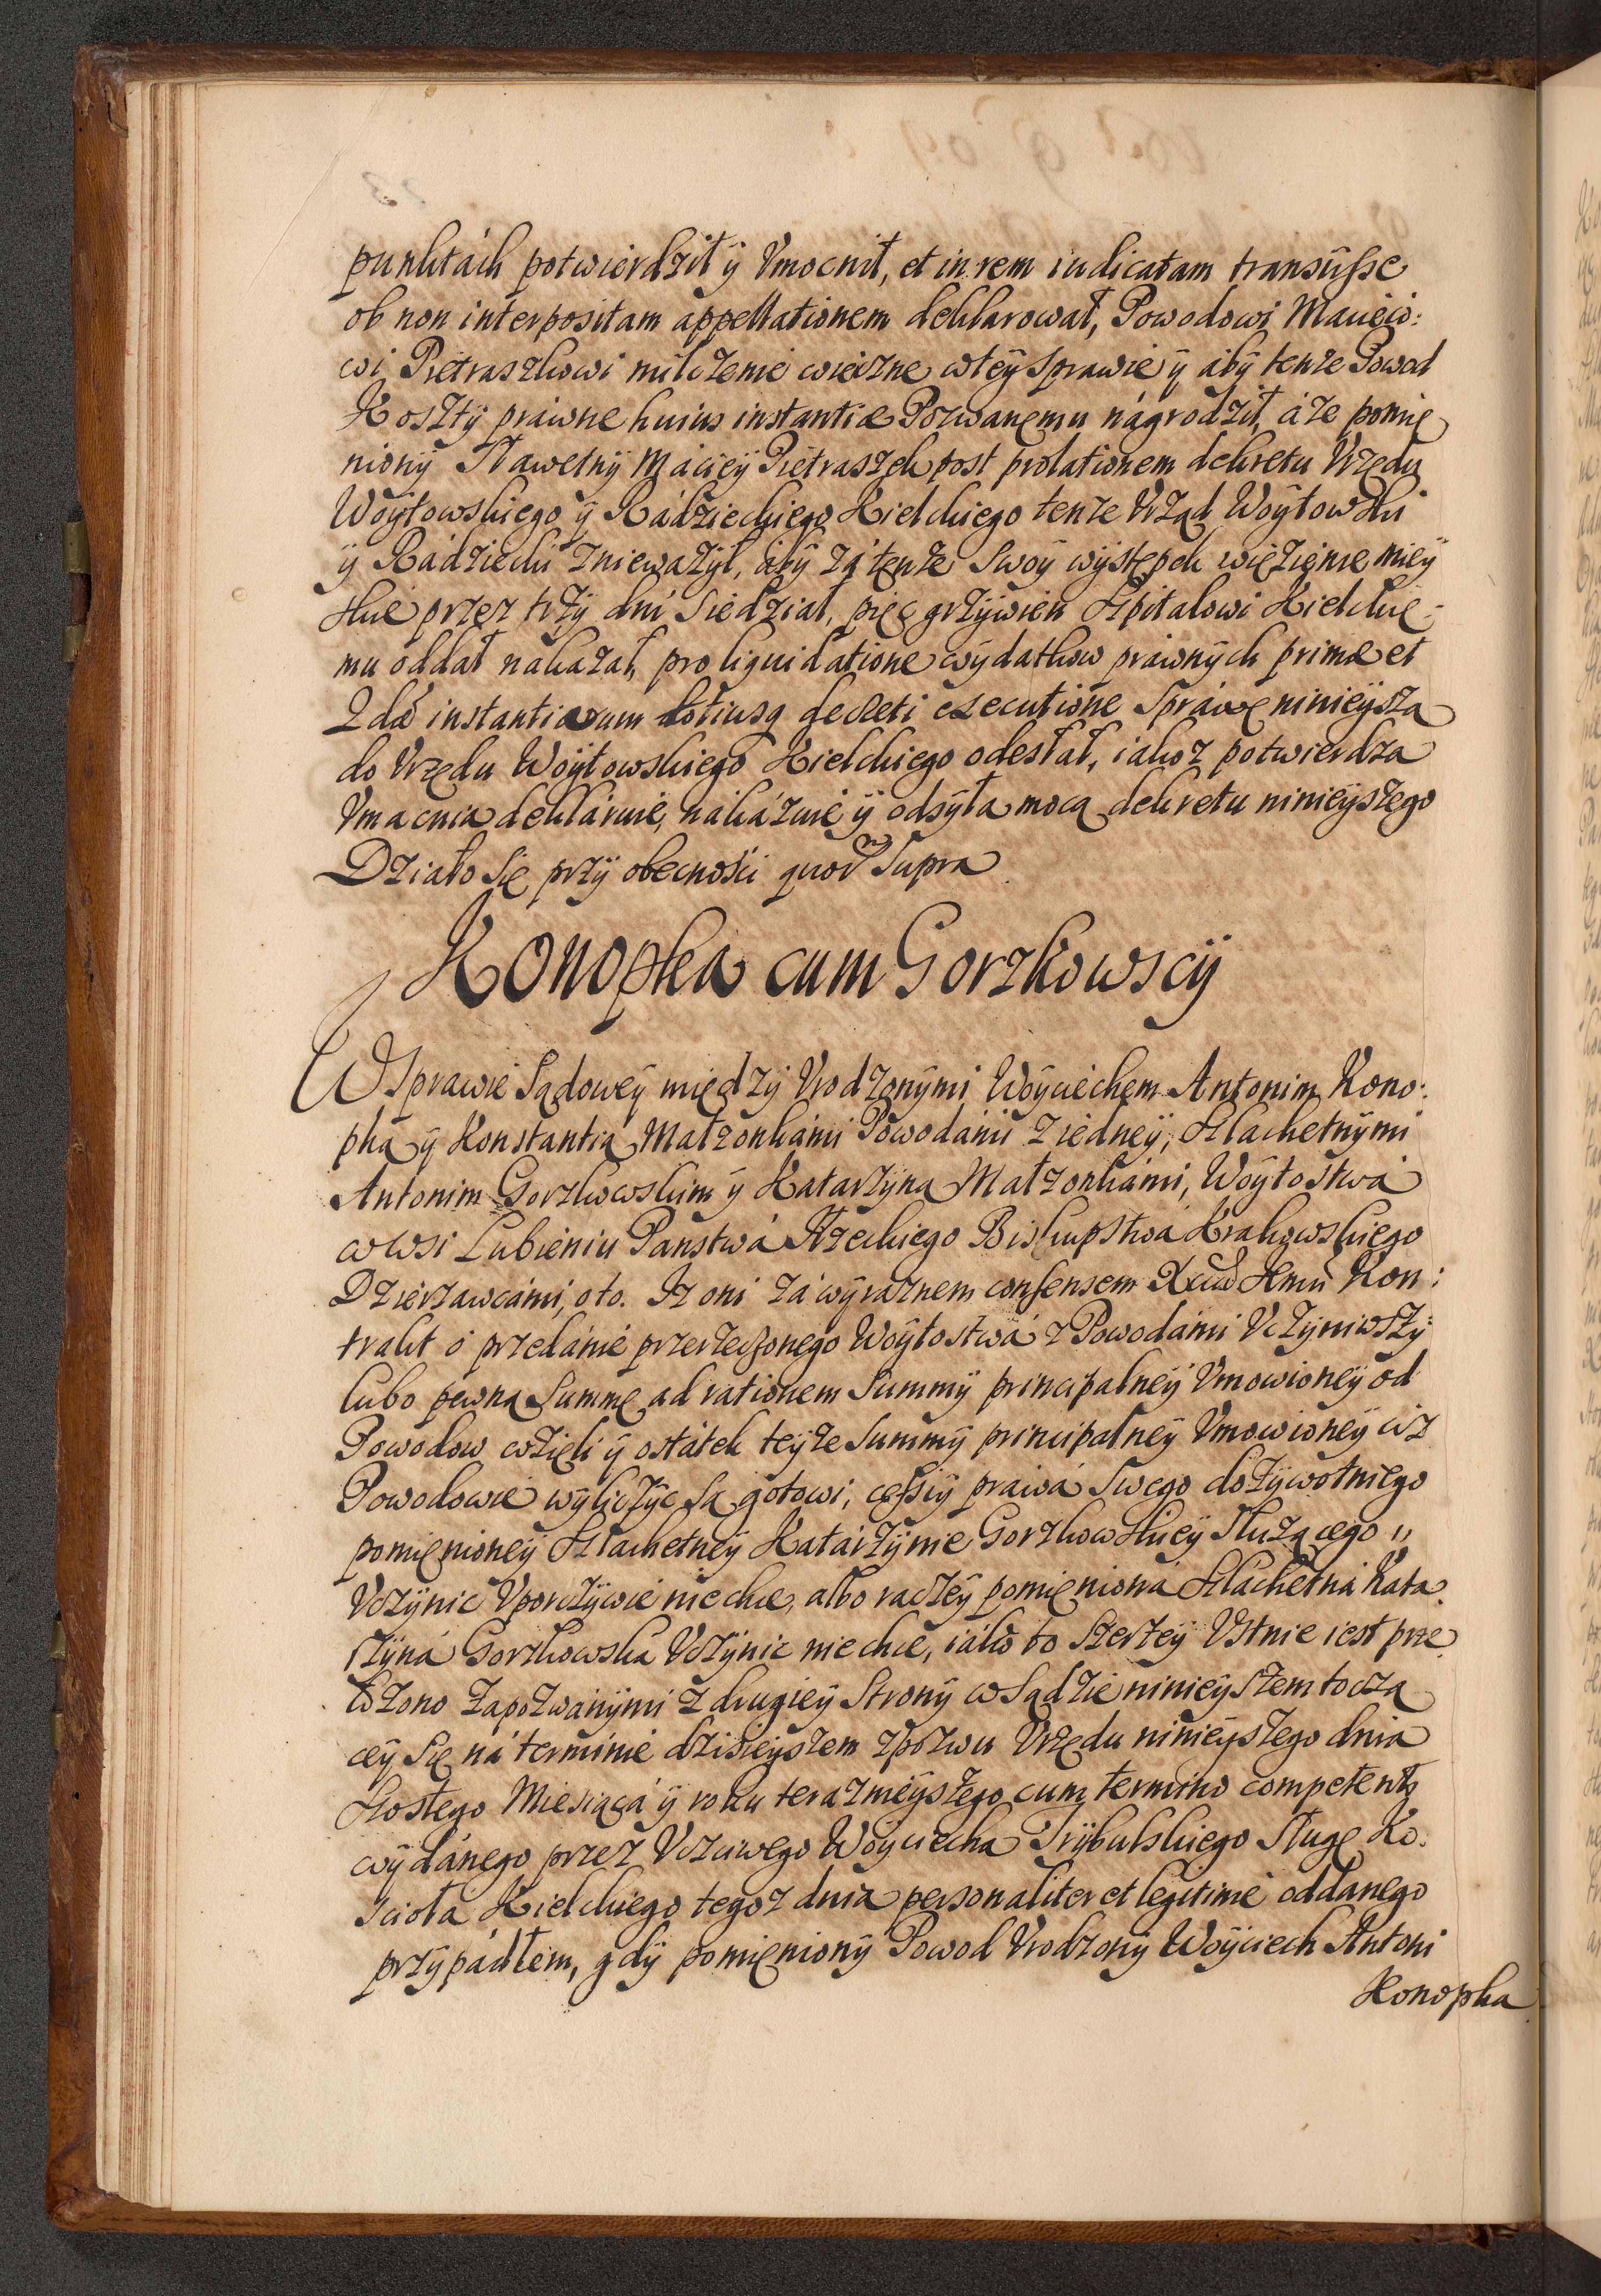 punktách potwierdził ÿ Vmocnił, et in rem iudicatam transÿsse
ob non interpositam appellationem deklarowáł, Powodowi Macieio:
wi Pietraszkowi milczenie wieczne wteÿ Sprawie ÿ abÿ tenze Powod
Koszty práwne huius instantiæ Pozwanemu nágrodził, á ze pomie
nionÿ Sławetnÿ Macieÿ Pietraszek post prolationem dekretu Vrzędu
Woÿtowskiego ÿ Rádzieckiego Kielckiego tenze Vrząd Woÿtowski
ÿ Rádziecki zniewazÿł, abÿ zá tenze Swoÿ wÿstępek więzienie mieÿ
skie przez trzÿ dni Siedział, pięc grzÿwien Szpitalowi Kielckie-
mu oddał nakazał, pro liquidatione wÿdatkow práwnÿch primæ et
2dæ instantiarum totiusq decreti executione Spráwę ninieÿszą
do Vrzędu Woÿtowskiego Kielckiego odesłał, iakoz potwierdza
Vmacnia deklaruie, nákázuie ÿ odsÿła mocą dekretu ninieÿszego
Działo Się przÿ obecnosci quorm Supra
Konopka cum Gorzkowscÿ
W Sprawie Sądoweÿ międzÿ Vrodzonÿmi Woÿciechem Antonim Kono:
pką ÿ Konstantią Małzonkámi Powodámi z iedneÿ, Szlachetnÿmi
Antonim Gorzkowskim ÿ Katarzÿną Małzonkámi, Woÿtostwá
wwsi Lubieniu Panstwá Iłzeckiego Biskupstwá Krakowskiego
Dzierzawcámi, oto. Iz oni zá wÿraznem consensem Kon:
trakt o przedánie przerzeczonego Woÿtostwá z Powodámi Vczÿniwszÿ
lubo pewną Summę ad rationem Summÿ principalneÿ Vmowioneÿ od
Powodow wzięli ÿ ostátek teÿze Summÿ principalneÿ Vmowioneÿ ciz
Powodowie wÿliczÿc Są gotowi, cessiÿ práwá Swego dozÿwotniego
pomienioneÿ Szlachetneÿ Katárzÿnie Gorzkowskieÿ Słuzącego
Vczÿnic Vporczÿwie niechcę, albo raczeÿ pomieniona Szláchetná Kata:
rzÿná Gorzkowska Vczÿnic niechce, iáko to Szerzeÿ Vstnie iest prze
łozono zapozwánÿmi z drugieÿ Stronÿ w Sądzie ninieÿszem toczą
ceÿ Się ná terminie dzisieÿszem zpozwu Vrzędu ninieÿszego dnia
Szostego Miesiącá ÿ roku teraznieÿszego cum termino competenti
wÿdánego przez Vczciwego Woÿciecha Trÿbulskiego Sługę Ko:
scioła Kielckiego tegoz dnia personaliter et legitime oddanego
przÿpádłem, gdÿ pomienionÿ Powod Vrodzonÿ Woÿciech Antoni
Konopka